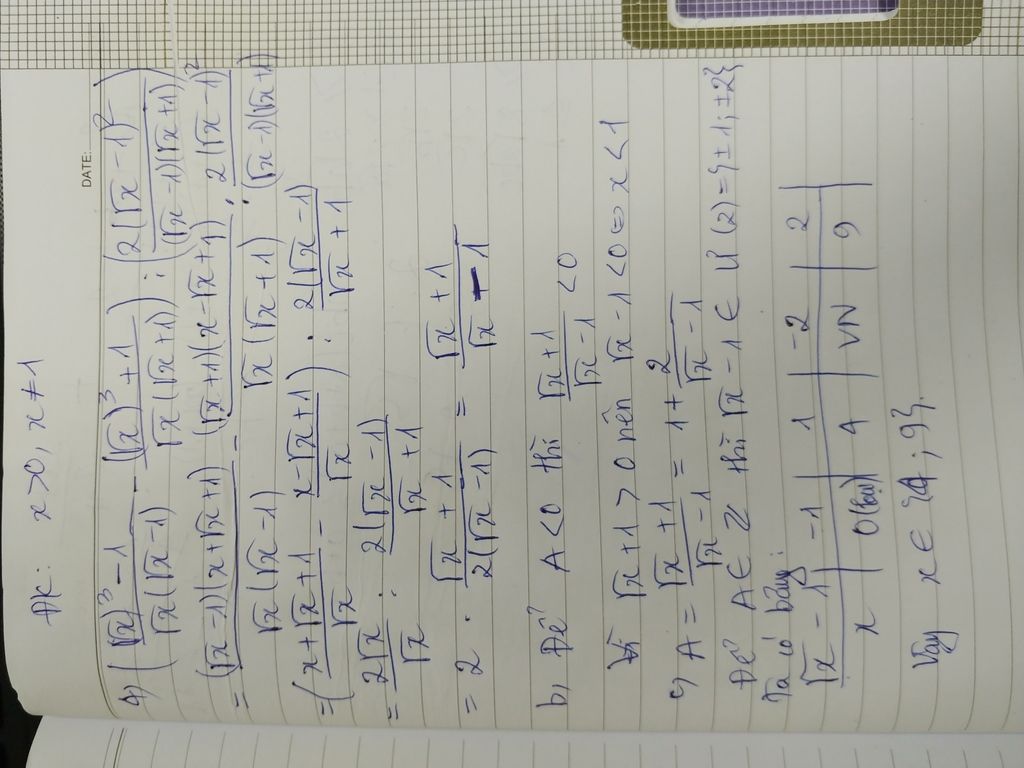 DATE:
ĐK: x>0, x≠1
a, ( (√x)³-1 / √x(√x-1) - (√x)³+1 / √x(√x+1) ) : ( 2(√x-1)² / (√x-1)(√x+1) )
= (√x-1)(x+√x+1) / √x(√x-1) - (√x+1)(x-√x+1) / √x(√x+1) : 2(√x-1)² / (√x-1)(√x+1)
= ( x+√x+1 / √x - x-√x+1 / √x ) : 2(√x-1) / √x+1
= 2√x / √x : 2(√x-1) / √x+1
= 2 . √x+1 / 2(√x-1) = √x+1 / √x-1
b, Để A<0 thì √x+1 / √x-1 <0
Vì √x+1 > 0 nên √x-1 <0 ⇔ x<1
c, A = √x+1 / √x-1 = 1+ 2 / √x-1
Để A ∈ Z thì √x-1 ∈ Ư(2)={±1;±2}
Ta có bảng:
√x-1 | -1 | 1 | -2 | 2
x | 0(loại) | 4 | VN | 9
Vậy x ∈ {4; 9}.